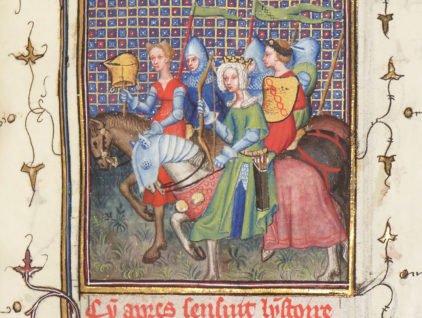 Cy apres sensuit lystoire